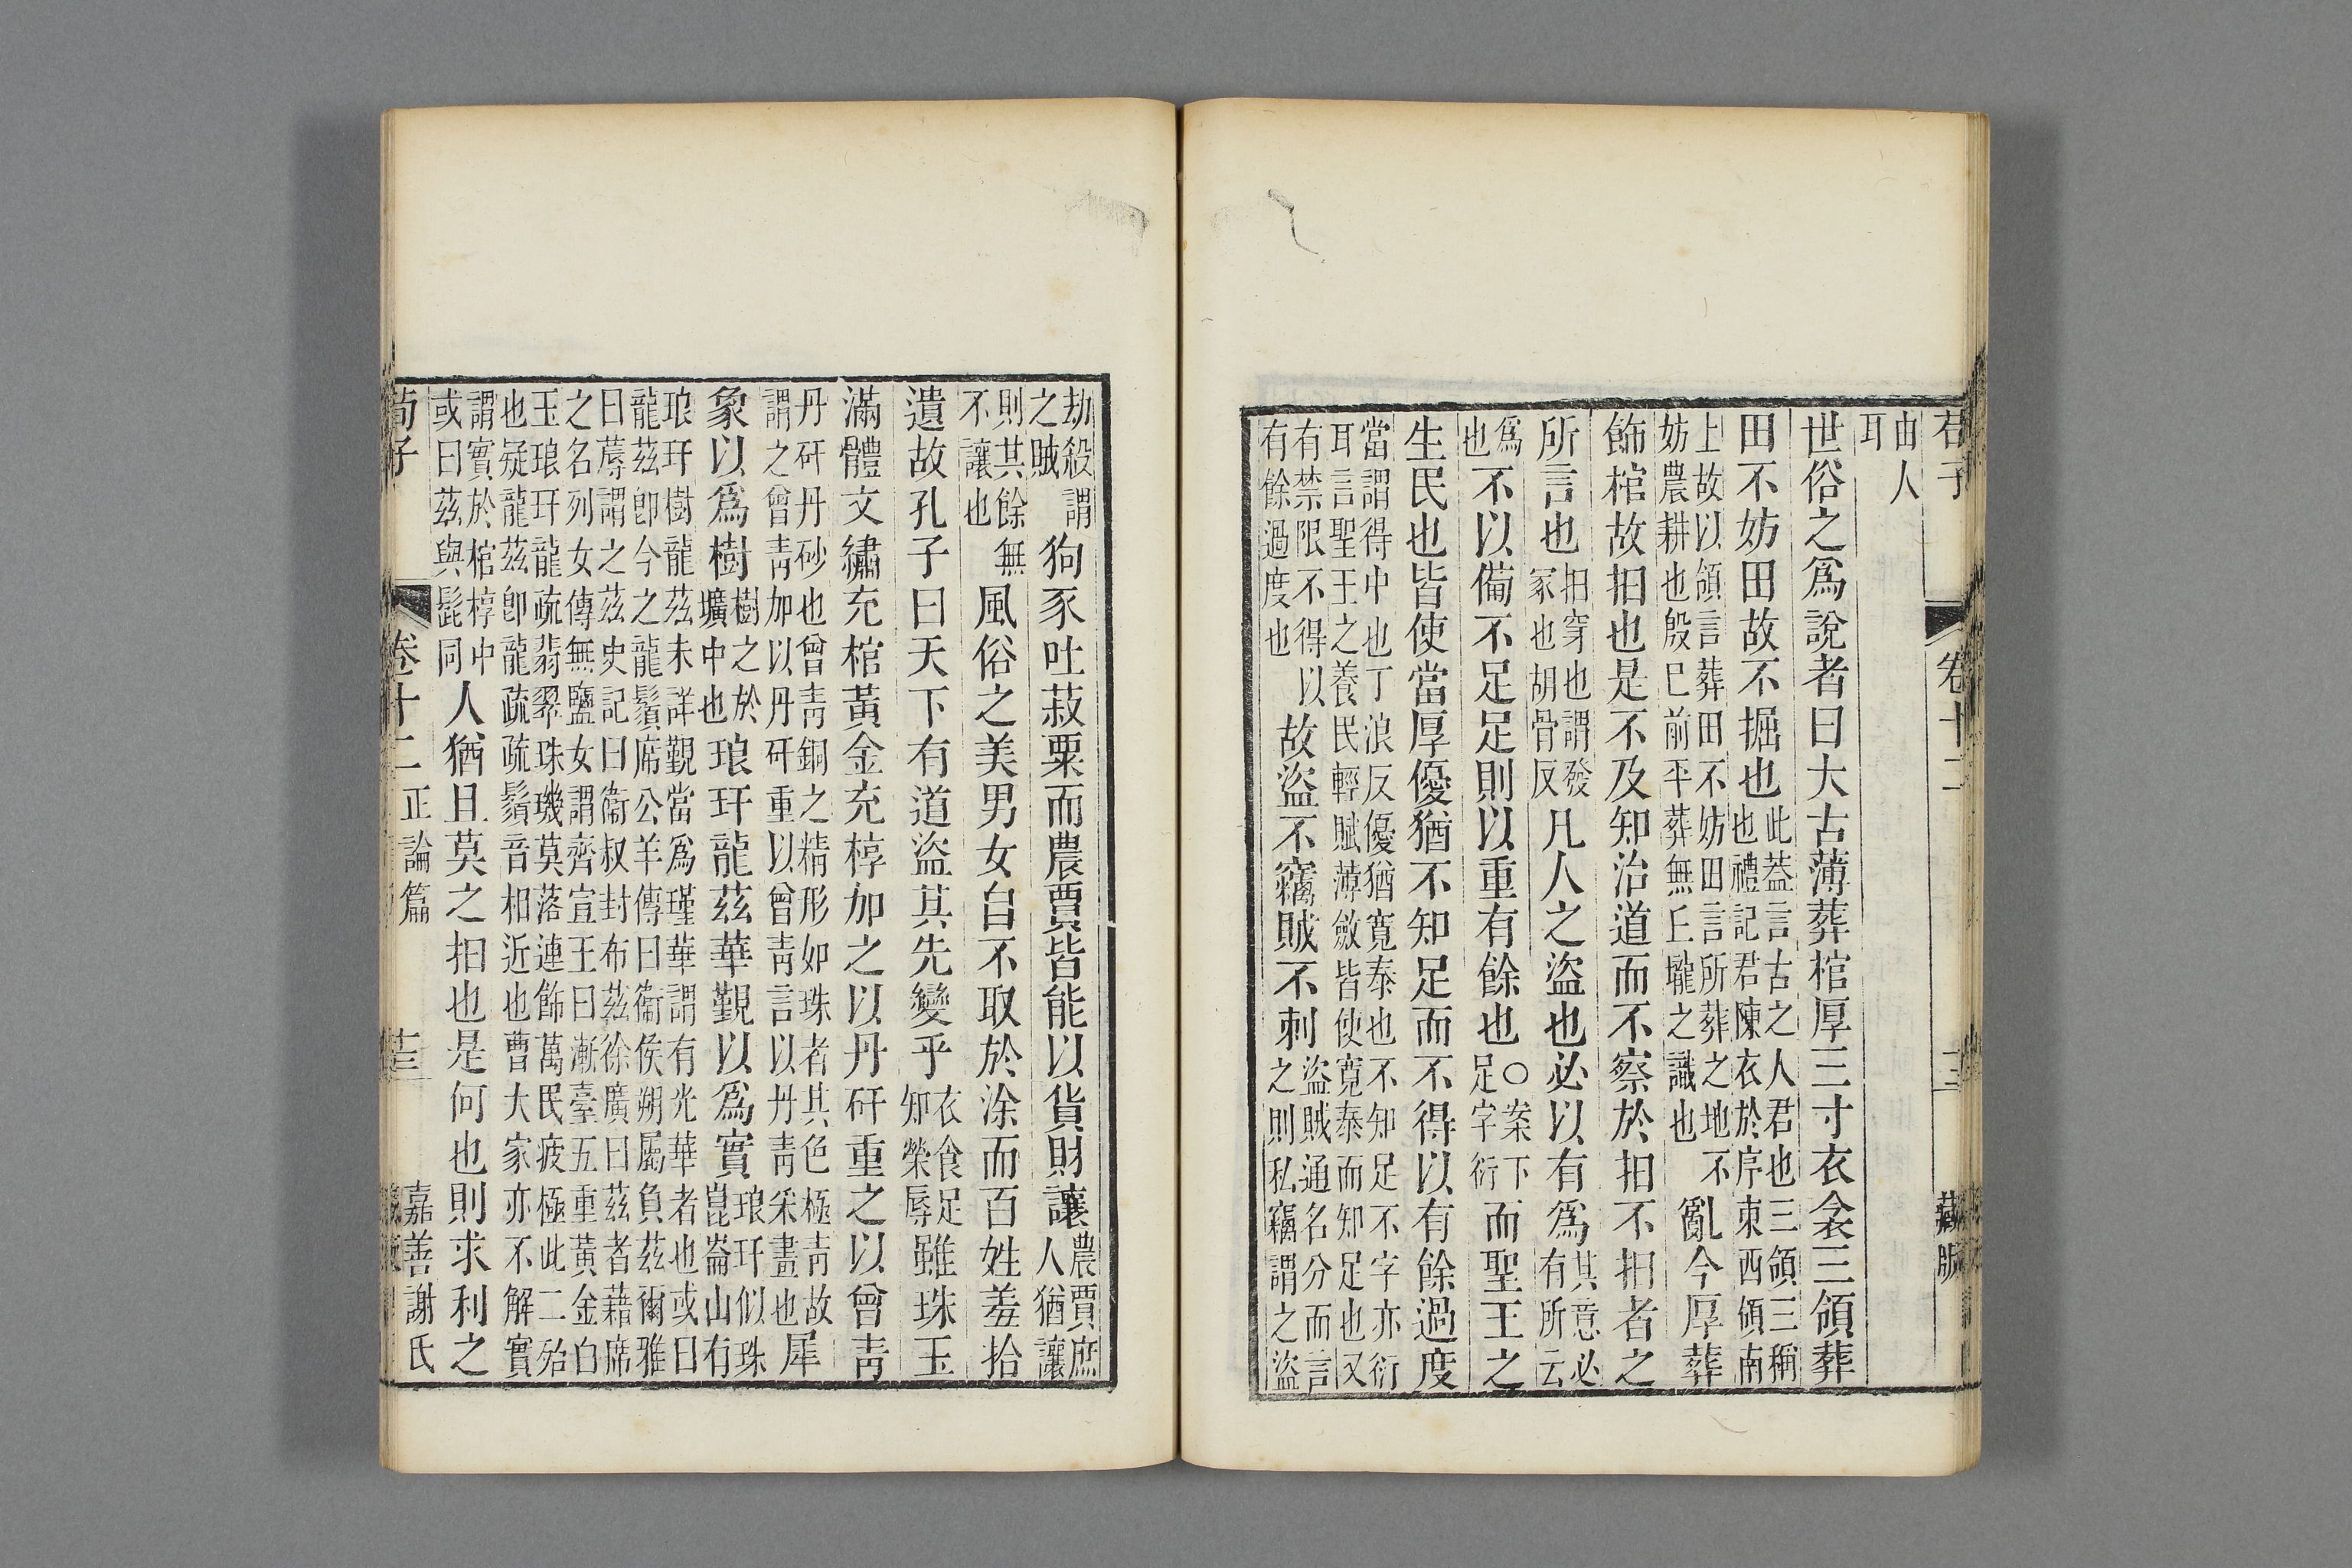 荀子 卷十二 十三 藏版
由人耳
世俗之爲說者曰大古薄葬棺厚三寸衣衾三領葬
田不妨田故不掘也此蓋言古之人君也三領三稱也禮記君陳衣於序東西領南
上故以領言葬田不妨田言所葬之地不妨農耕也殷已前平葬無丘壠之識也亂今厚葬
飾棺故抇也是不及知治道而不察於抇不抇者之
所言也抇穿也謂發冢也胡骨反凡人之盜也必以有爲其意必有所云
爲也不以備不足足則以重有餘也○案下足字衍而聖王之
生民也皆使當厚優猶不知足而不得以有餘過度
當謂得中也丁浪反優猶寬泰也不知足不字亦衍耳言聖王之養民輕賦薄斂皆使寬泰而知足也又
有禁限不得以有餘過度也故盜不竊賊不刺盜賊通名分而言之則私竊謂之盜
劫殺謂之賊狗豕吐菽粟而農賈皆能以貨財讓農賈庶人猶讓
則其餘無不讓也風俗之美男女自不取於涂而百姓羞拾
遺故孔子曰天下有道盜其先變乎衣食足知榮辱雖珠玉
滿體文繡充棺黃金充椁加之以丹矸重之以曾靑
丹矸丹砂也曾靑銅之精形如珠者其色極靑故謂之曾靑加以丹矸重以曾靑言以丹靑采畫也犀
象以爲樹樹之於壙中也琅玕龍茲華覲以爲實琅玕似珠崑崙山有
琅玕樹龍茲未詳覲當爲瑾華謂有光華者也或曰龍茲卽今之龍鬚席公羊傳曰衞侯朔屬負茲爾雅
曰蓐謂之茲史記曰衞叔封布茲徐廣曰茲者藉席之名列女傳無鹽女謂齊宣王曰漸臺五重黃金白
玉琅玕龍疏翡翠珠璣莫落連飾萬民疲極此二殆也疑龍茲卽龍疏疏鬚音相近也曹大家亦不解實
謂實於棺椁中或曰茲與髭同人猶且莫之抇也是何也則求利之
荀子 卷十二 正論篇 十三 嘉善謝氏